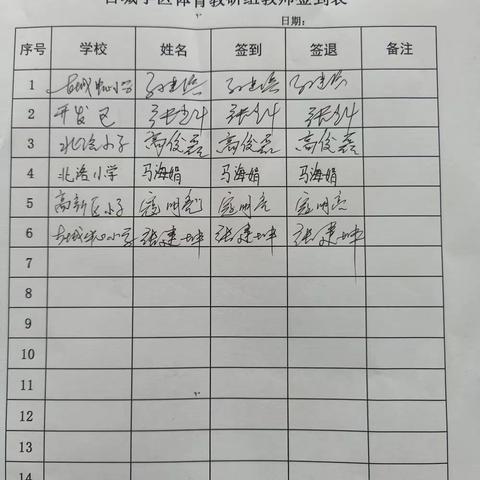 古城学区体育教研组教师签到表
日期：
序号 学校 姓名 签到 签退 备注
1 古城中心小学
2 开发区
3 北冶小学 高俊磊 高俊磊 高俊磊
4 北冶小学 马海娟 马海娟 马海娟
5 高新区小学 寇明亮 寇明亮 寇明亮
6 古城中心小学 张建坤 张建坤 张建坤
7
8
9
10
11
12
13
14